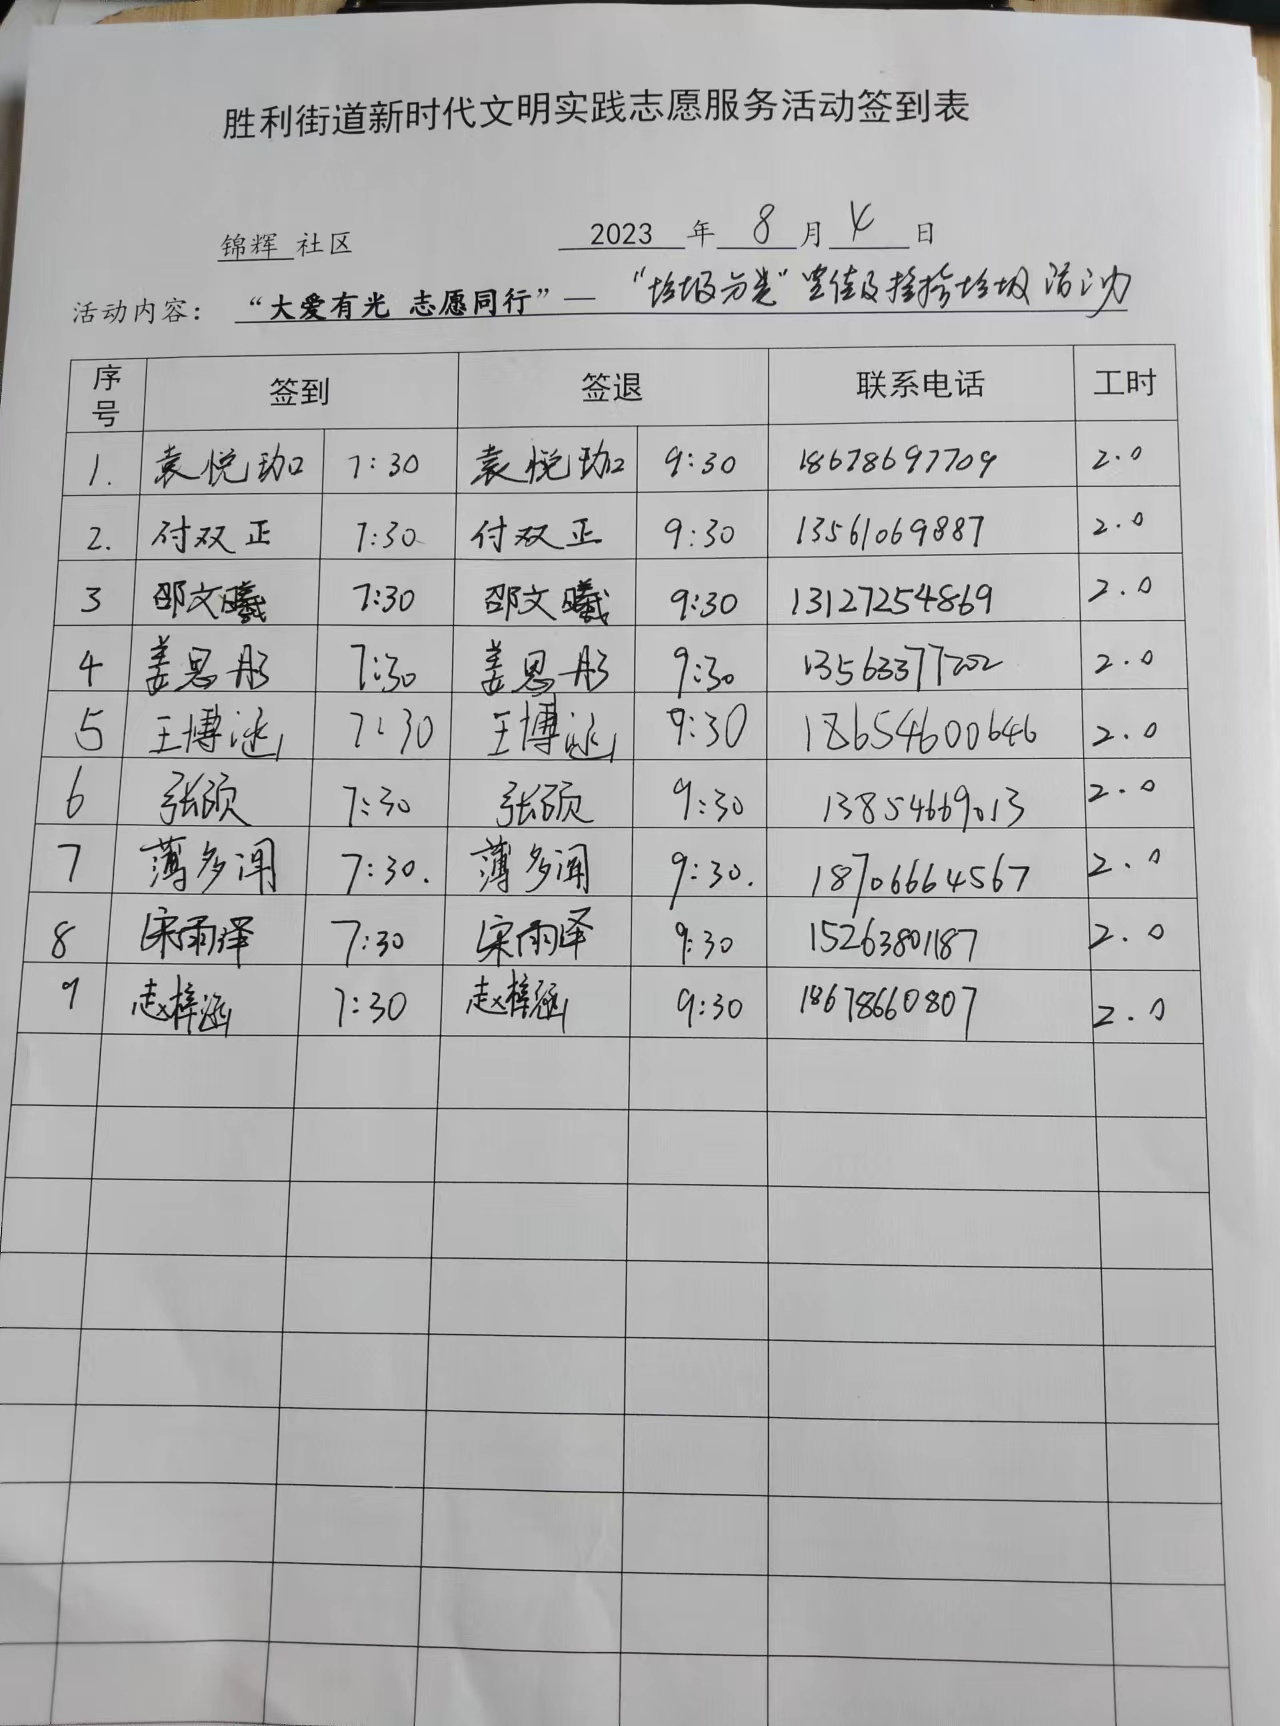 胜利街道新时代文明实践志愿服务活动签到表
锦辉 社区 2023 年 8 月 4 日
活动内容： “大爱有光 志愿同行”— “垃圾分类”宣传及捡拾垃圾活动
序号 签到 签退 联系电话 工时
1. 袁悦珈 7:30 袁悦珈 9:30 18678697709 2.0
2. 付双正 7:30 付双正 9:30 13561069887 2.0
3 邵文曦 7:30 邵文曦 9:30 13127254869 2.0
4 姜思彤 7:30 姜思彤 9:30 13563377202 2.0
5 王博涵 7:30 王博涵 9:30 18654600646 2.0
6 张硕 7:30 张硕 9:30 13854669013 2.0
7 薄多闻 7:30. 薄多闻 9:30. 18706664567 2.0
8 宋雨泽 7:30 宋雨泽 9:30 15263801187 2.0
9 赵梓涵 7:30 赵梓涵 9:30 18678660807 2.0